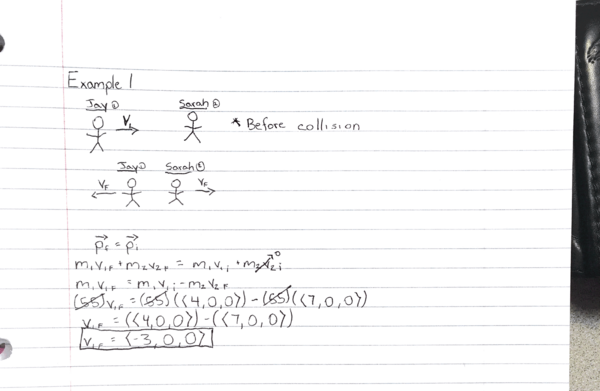 Example 1
Jay ① Sarah ②
V₁ * Before collision
Jay ① Sarah ②
VF VF
p⃗f = p⃗i
m₁v₁F + m₂v₂F = m₁v₁i + m₂v₂i → 0
m₁v₁F = m₁v₁i - m₂v₂F
(55)v₁F = (55)(⟨4,0,0⟩) - (55)(⟨7,0,0⟩)
v₁F = (⟨4,0,0⟩) - (⟨7,0,0⟩)
v₁F = ⟨-3,0,0⟩